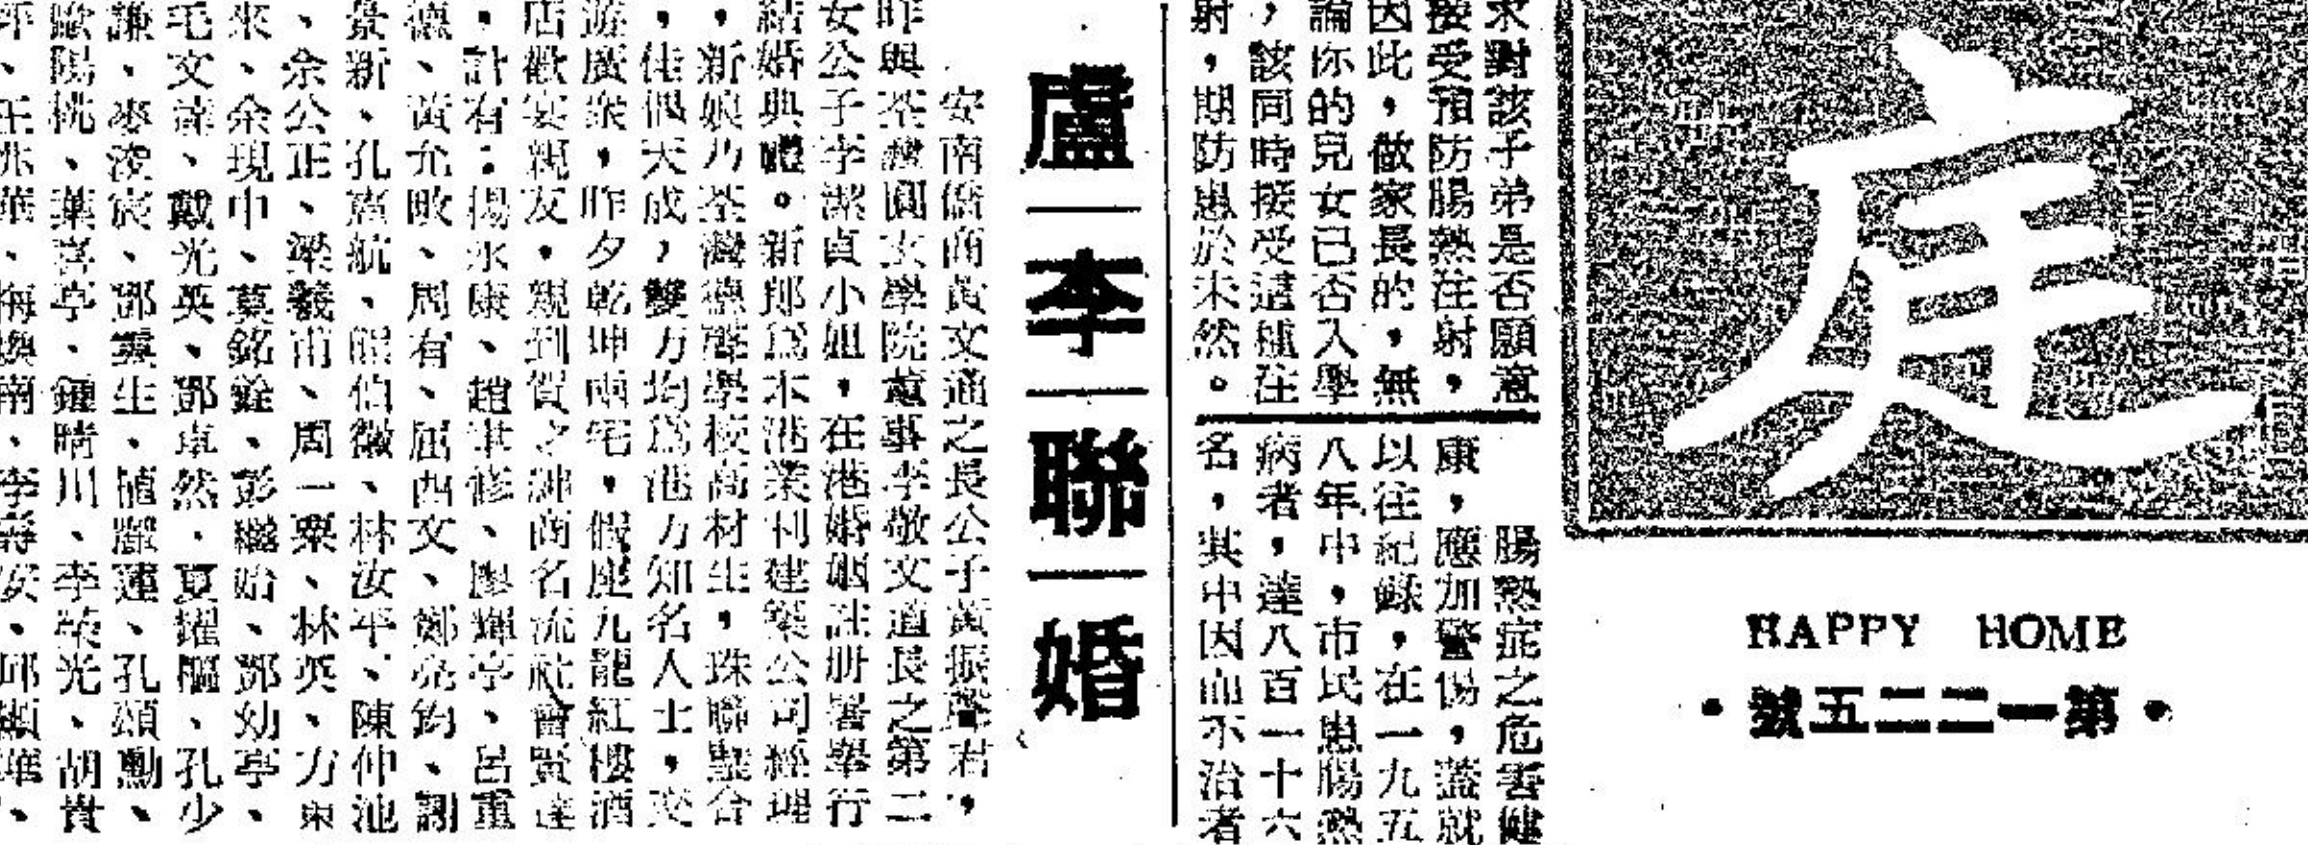 庭
HAPPY HOME
•第一二二五號•
求對該子弟是否願意
接受預防腸熱注射，
因此，做家長的，無
論你的兒女已否入學
，該同時接受這種注
射，期防患於未然。
腸熱症之危害健
康，應加警惕，蓋就
以往紀錄，在一九五
八年中，市民患腸熱
病者，達八百一十六
名，其中因而不治者
盧—李—聯—婚
安南僑商黃文通之長公子黃振聲君，
昨與荃灣圓玄學院董事李敬文道長之第二
女公子李潔貞小姐，在港婚姻註册署舉行
結婚典禮。新郎為本港業利建築公司經理
，新娘乃荃灣德聲學校高材生，珠聯璧合
，佳偶天成，雙方均為港方知名人士，交
游廣衆，昨夕乾坤兩宅，假座九龍紅樓酒
店歡宴親友。親到賀之紳商名流社會賢達
，計有：楊永康、趙聿修、廖輝亭、呂重
德、黃允畋、周有、屈西文、鄭亮鈞、謝
景新、孔憲航、熙伯徽、林汝平、陳仲池
、余公正、梁羲甫、周一粟、林英、方東
來、余現中、莫銘銓、彭繼貽、鄧効亭、
毛文漳、戴光英、鄧卓然、夏耀樞、孔少
謙、麥浚宸、鄧雲生、植麗蓮、孔頌勳、
歐陽桃、葉喜亭、鍾晴川、李榮光、胡貴
、王兆華、梅煥南、李壽安、邱顯華、